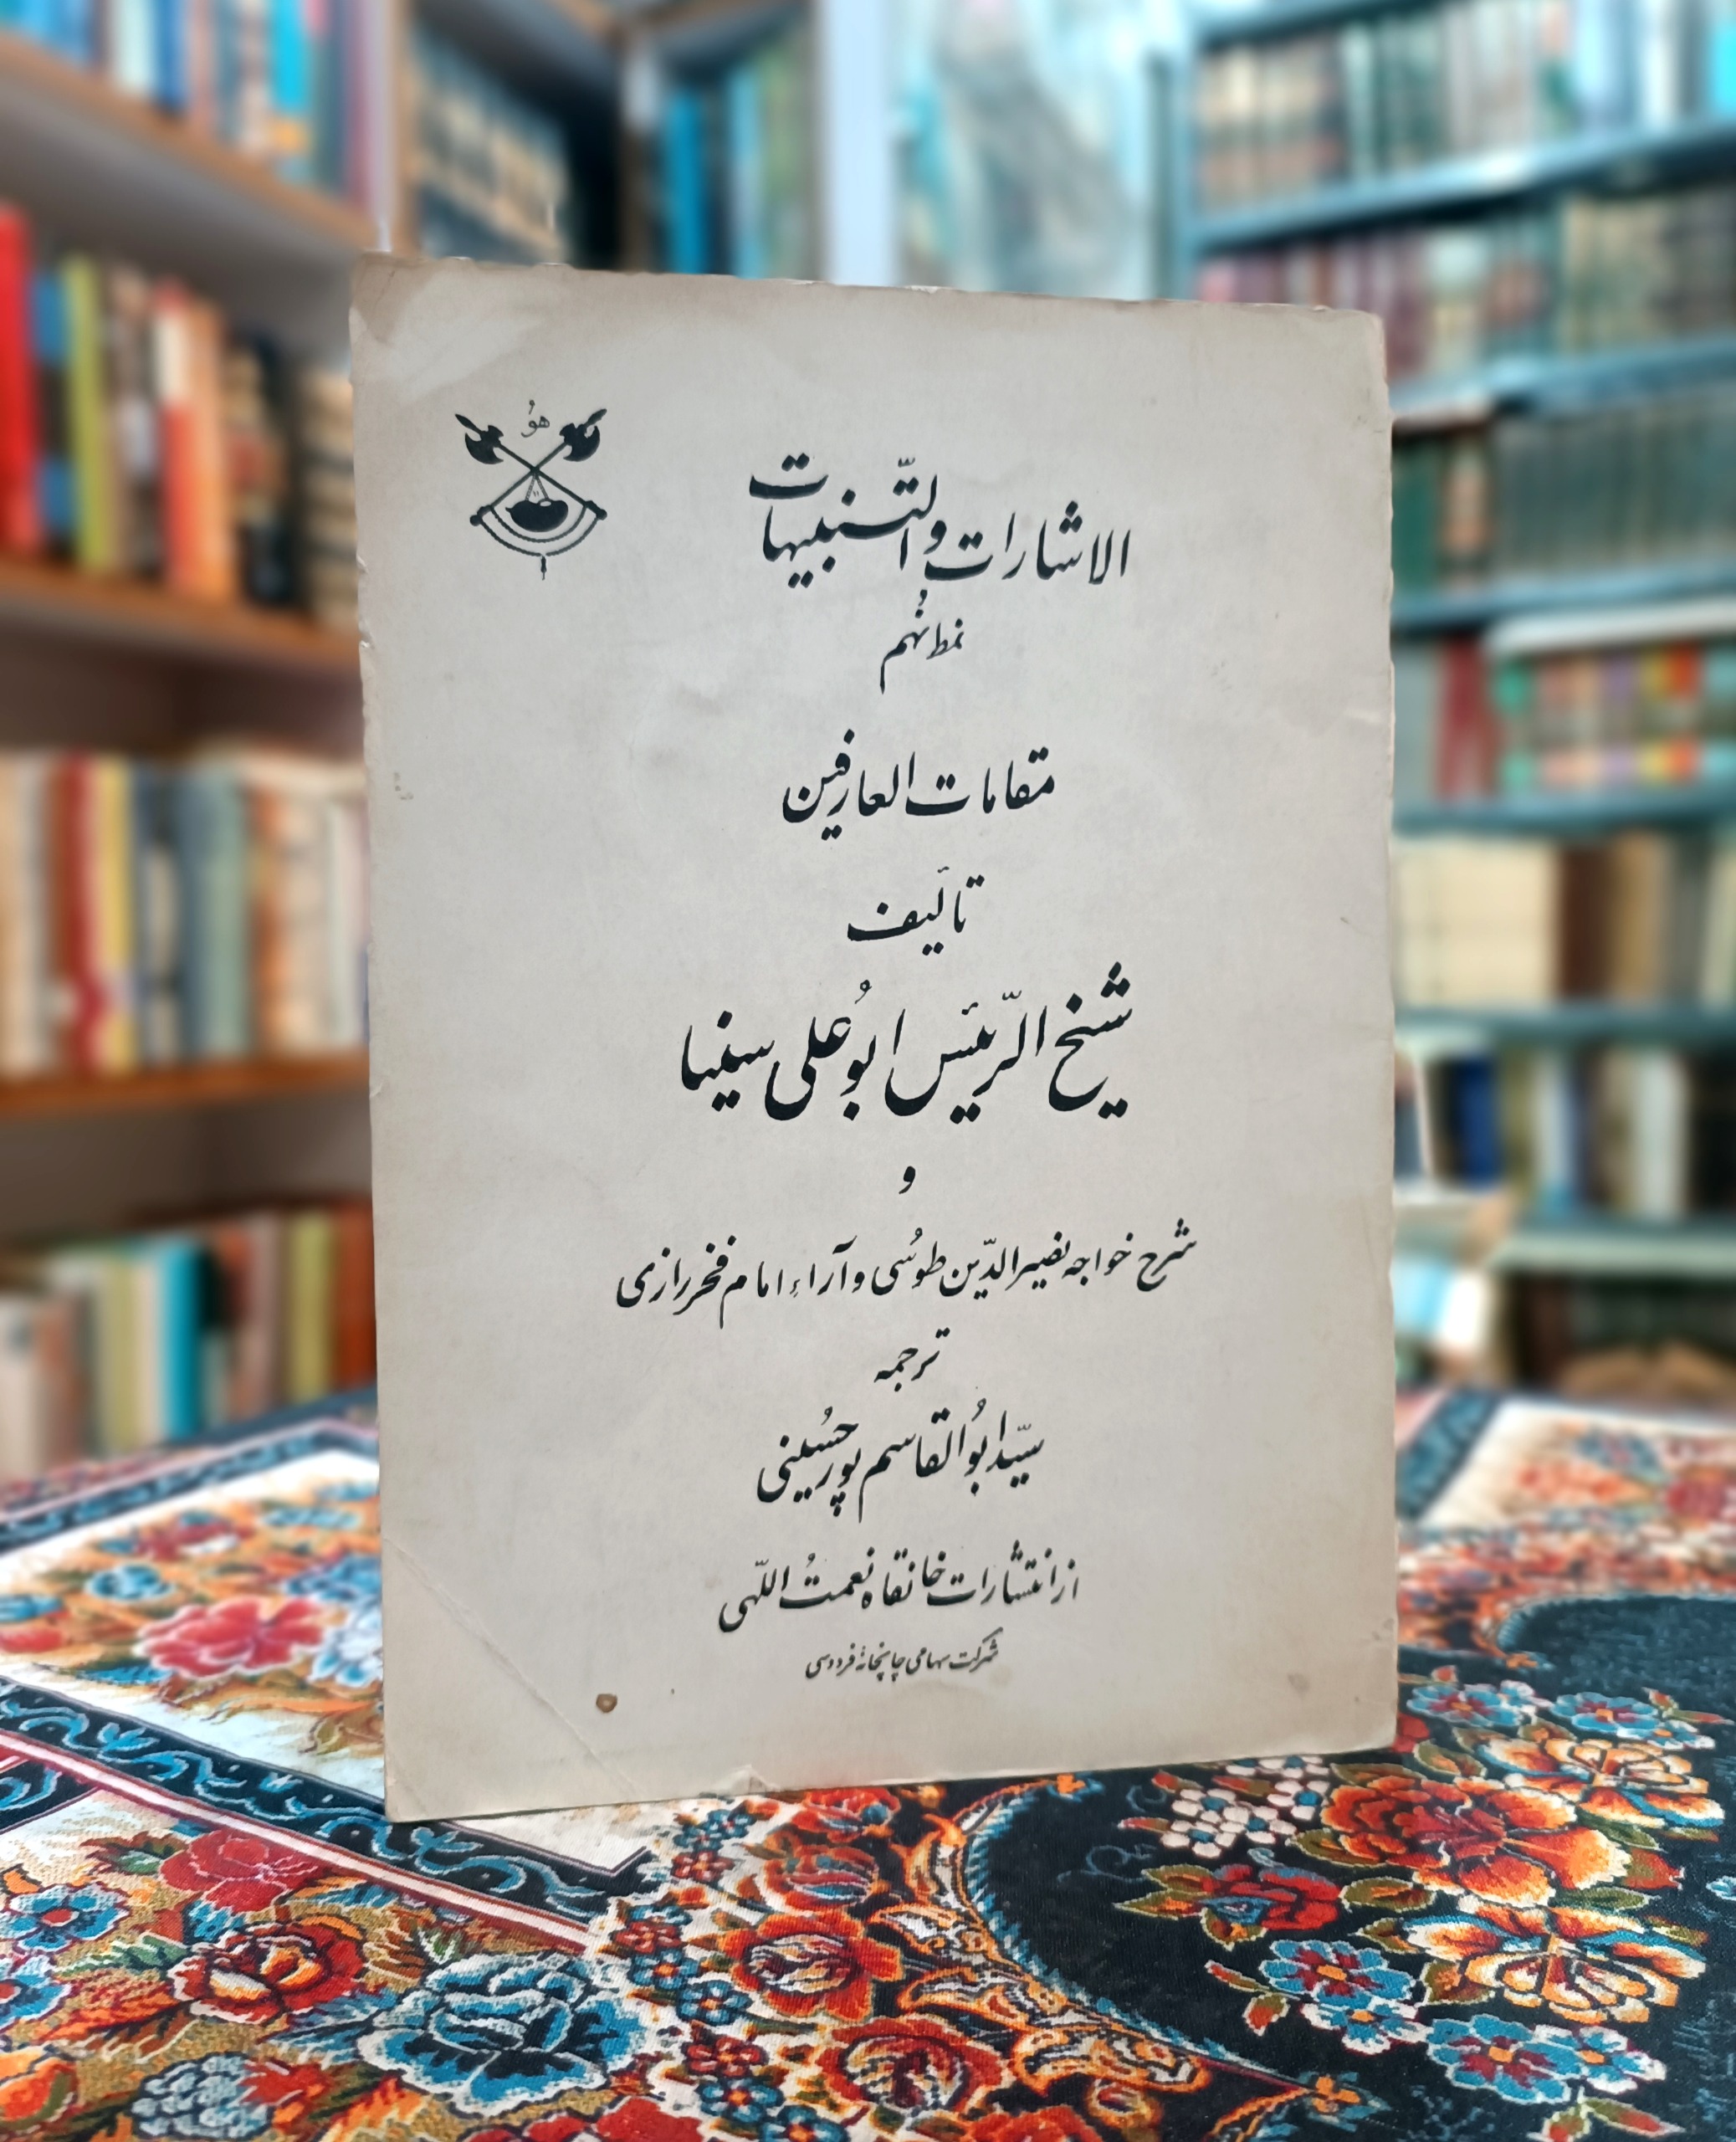 هُو
الاشارات والتّنبیهات
نمط نُهم
مقامات العارفین
تألیف
شیخ الرّئیس ابوُعلی سینا
و
شرح خواجه نصیرالدّین طوسُی و آراء امام فخررازی
ترجمه
سیّد ابوُالقاسم پورحسُینی
از انتشارات خانقاه نعمتُ اللّهی
شرکت سهامی چاپخانهٔ فردوسی